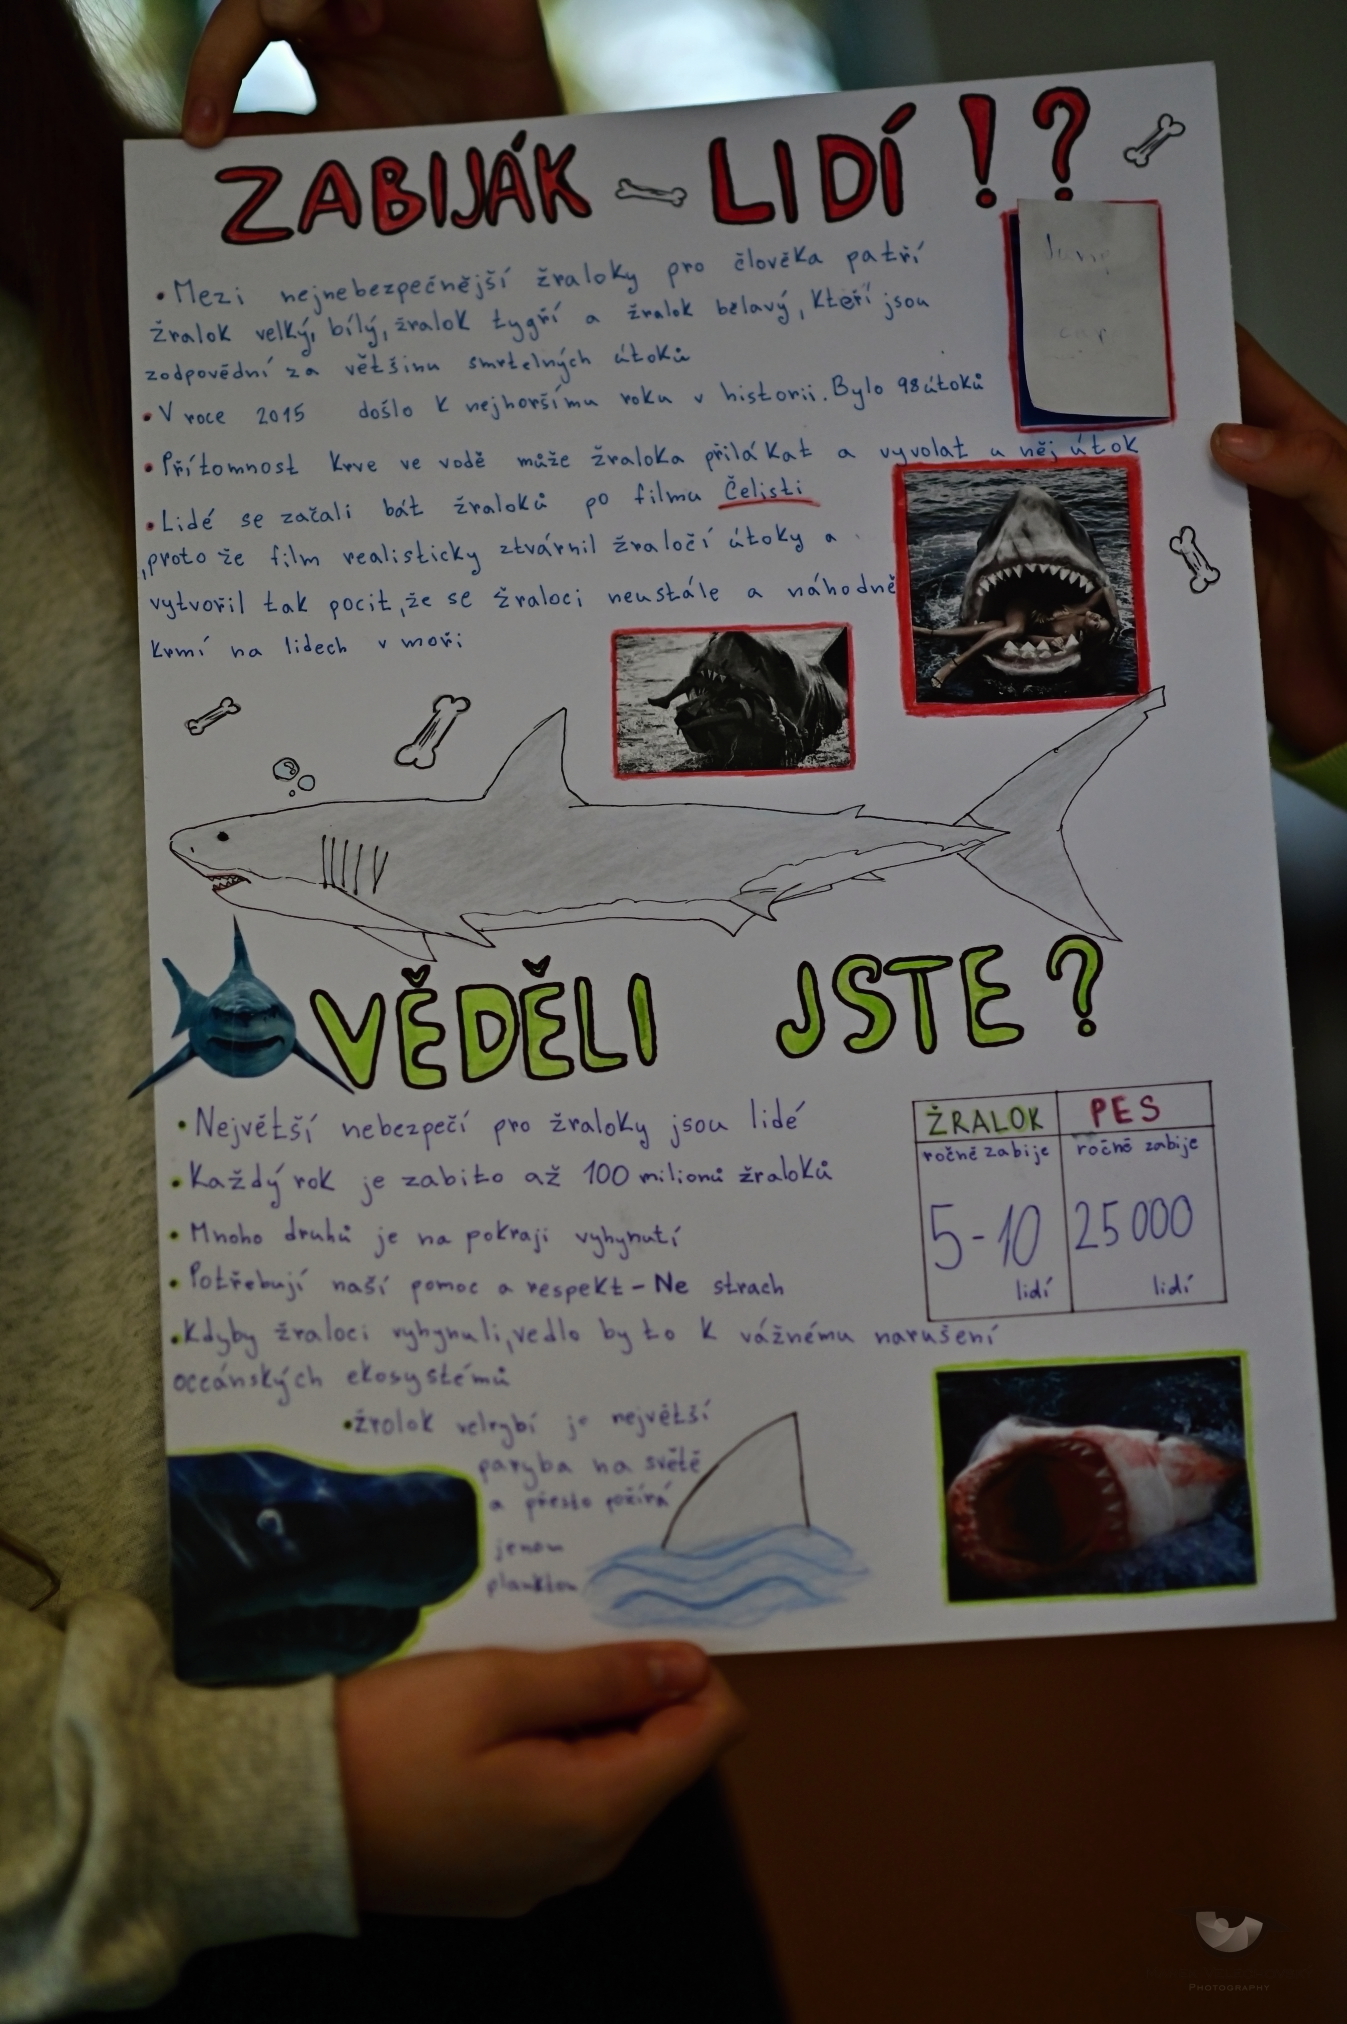 ZABIJÁK LIDÍ !?
• Mezi nejnebezpečnější žraloky pro člověka patří
žralok velký, bílý, žralok tygří a žralok bělavý, kteří jsou
zodpovědní za většinu smrtelných útoků
• V roce 2015 došlo k nejhoršímu roku v historii. Bylo 98 útoků
• Přítomnost krve ve vodě může žraloka přilákat a vyvolat u něj útok
• Lidé se začali bát žraloků po filmu Čelisti
,proto že film realisticky ztvárnil žraločí útoky a
vytvořil tak pocit,že se žraloci neustále a náhodně
krmí na lidech v moři
VĚDĚLI JSTE ?
• Největší nebezpečí pro žraloky jsou lidé
• Každý rok je zabito až 100 milionů žraloků
• Mnoho druhů je na pokraji vyhynutí
• Potřebují naší pomoc a respekt - Ne strach
• Kdyby žraloci vyhynuli,vedlo by to k vážnému narušení
oceánských ekosystémů
• žrolok velrybí je největší
paryba na světě
a přesto požírá
jenom
plankton
ŽRALOK PES
ročně zabije ročně zabije
5-10 25 000
lidí lidí
PHOTOGRAPHY